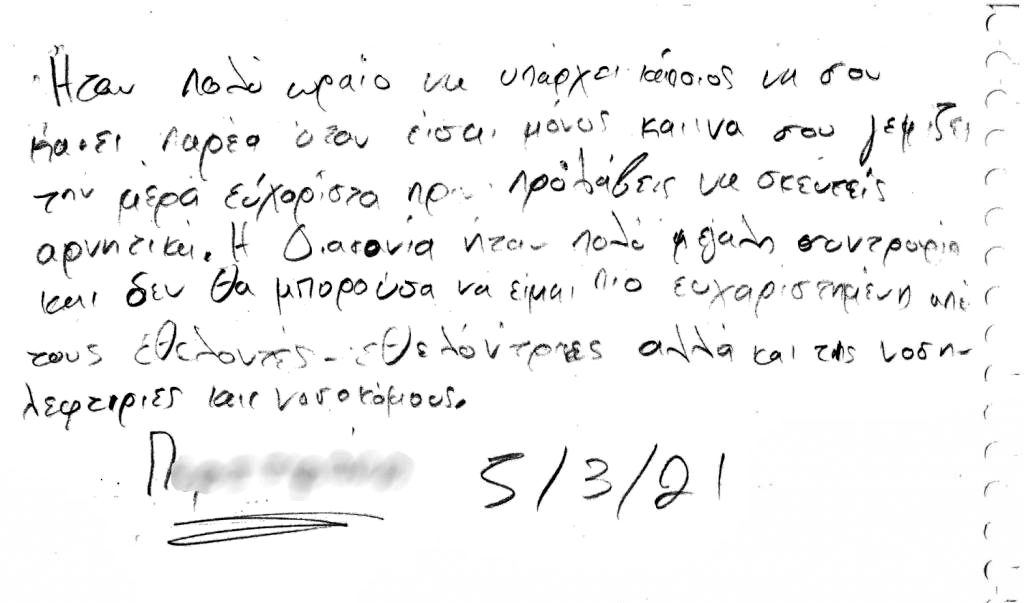 Ήταν πολύ ωραίο να υπάρχει κάποιος να σου
κάνει παρέα όταν είσαι μόνος και να σου γεμίζει
την μέρα ευχάριστα πριν προλάβεις να σκευτείς
αρνητικά. Η Διακονία ήταν πολύ μεγάλη συντροφιά
και δεν θα μπορούσα να είμαι πιο ευχαριστημένη από
τους εθελοντές - εθελόντριες αλλά και της νοση-
λεφτριες και νοσοκόμους.
5/3/21